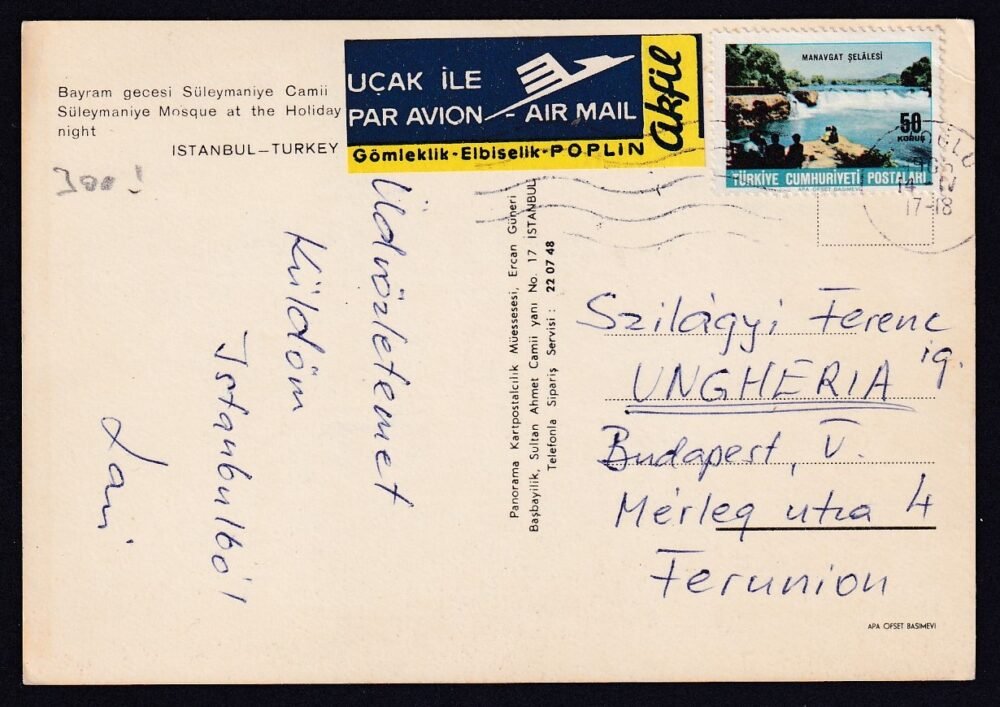 Bayram gecesi Süleymaniye Camii
Süleymaniye Mosque at the Holiday
night
ISTANBUL – TURKEY
300!
UÇAK İLE
PAR AVION - AIR MAIL
Gömleklik - Elbiselik - POPLIN
akfil
MANAVGAT ŞELÂLESİ
50
KURUŞ
TÜRKİYE CUMHURİYETİ POSTALARI
APA OFSET BASIMEVİ
17-18
Üdvözletemet
Küldöm
Istanbulból
Lani
Panorama Kartpostalcılık Müessesesi, Ercan Güneri
Başbayilik, Sultan Ahmet Camii yanı No. 17 İSTANBUL
Telefonla Sipariş Servisi : 22 07 48
Szilágyi Ferenc
ig.
UNGHERIA
Budapest, V.
Mérleg utca 4
Ferunion
APA OFSET BASIMEVİ